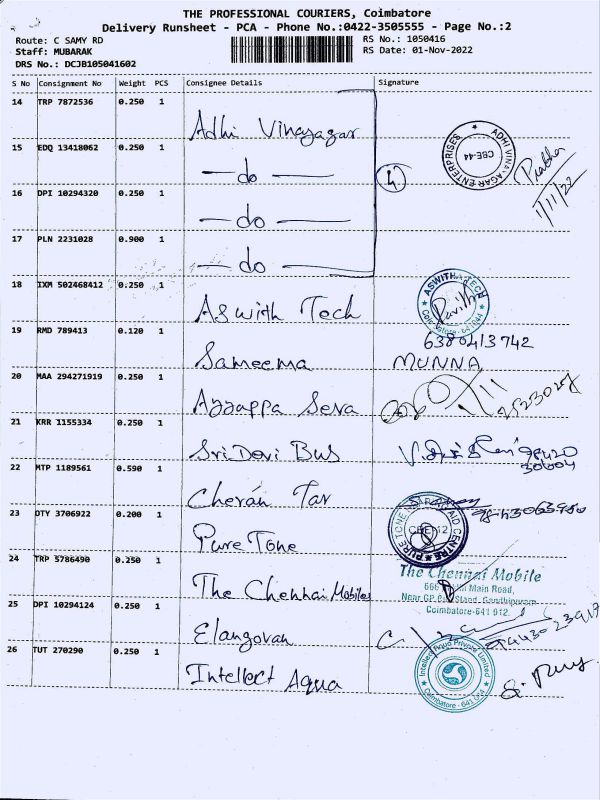 THE PROFESSIONAL COURIERS, Coimbatore
Delivery Runsheet - PCA - Phone No.:0422-3505555 - Page No.:2
Route: C SAMY RD RS No.: 1050416
Staff: MUBARAK RS Date: 01-Nov-2022
DRS No.: DCJB105041602
S No Consignment No Weight PCS Consignee Details Signature
14 TRP 7872536 0.250 1 Adhi Vinayagar
ADHI VINAYAGAR ENTERPRISES CBE-44
15 EDQ 13418062 0.250 1 do
4 Prabha 1/11/22
16 DPI 10294320 0.250 1 do
17 PLN 2231028 0.900 1 do
18 IXM 502468412 0.250 1 Aswith Tech
ASWITH TECH Coimbatore - 641 044
19 RMD 789413 0.120 1 Sameema
6380413742
MUNNA
20 MAA 294271919 0.250 1 Ayyappa Seva
21 KRR 1155334 0.250 1 Sri Devi Bus
98420
30004
22 MTP 1189561 0.590 1 Cheran Tar
23 DTY 3706922 0.200 1 Pure Tone
PURE TONE HEARING AID CENTRE CBE-12
24 TRP 5786490 0.250 1 The Chennai Mobiles
The Chennai Mobile
Main Road,
Near Stand, Gandhipuram
Coimbatore-641 012.
25 DPI 10294124 0.250 1 Elangovan
26 TUT 270290 0.250 1 Intellect Aqua
Intellect Aqua Private Limited Coimbatore - 641 044